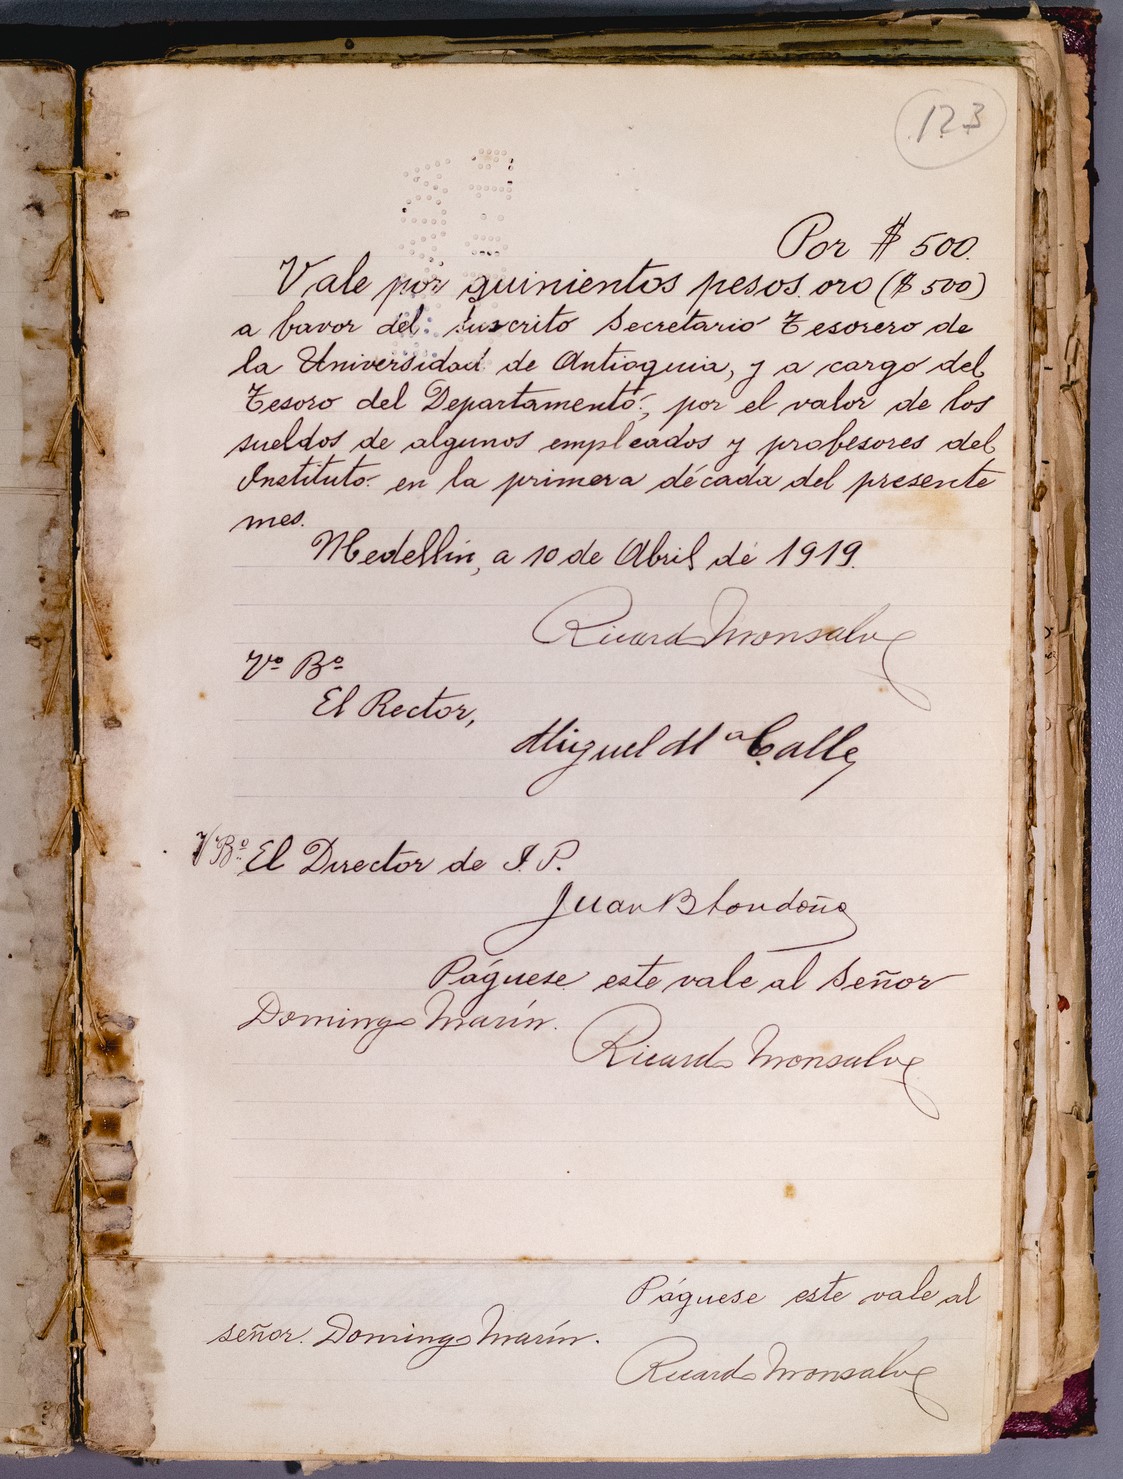 123
Por $ 500.
Vale por quinientos pesos oro ($ 500)
a favor del suscrito Secretario Tesorero de
la Universidad de Antioquia, y a cargo del
Tesoro del Departamento, por el valor de los
sueldos de algunos empleados y profesores del
Instituto en la primera década del presente
mes.
Medellín, a 10 de Abril de 1919.
Ricardo Monsalve
Vº Bº
El Rector,
Miguel Mª Calle
V Bº El Director de I. P.
Juan B Londoño
Páguese este vale al Señor
Domingo Marín.
Ricardo Monsalve
Páguese este vale al
señor Domingo Marín.
Ricardo Monsalve